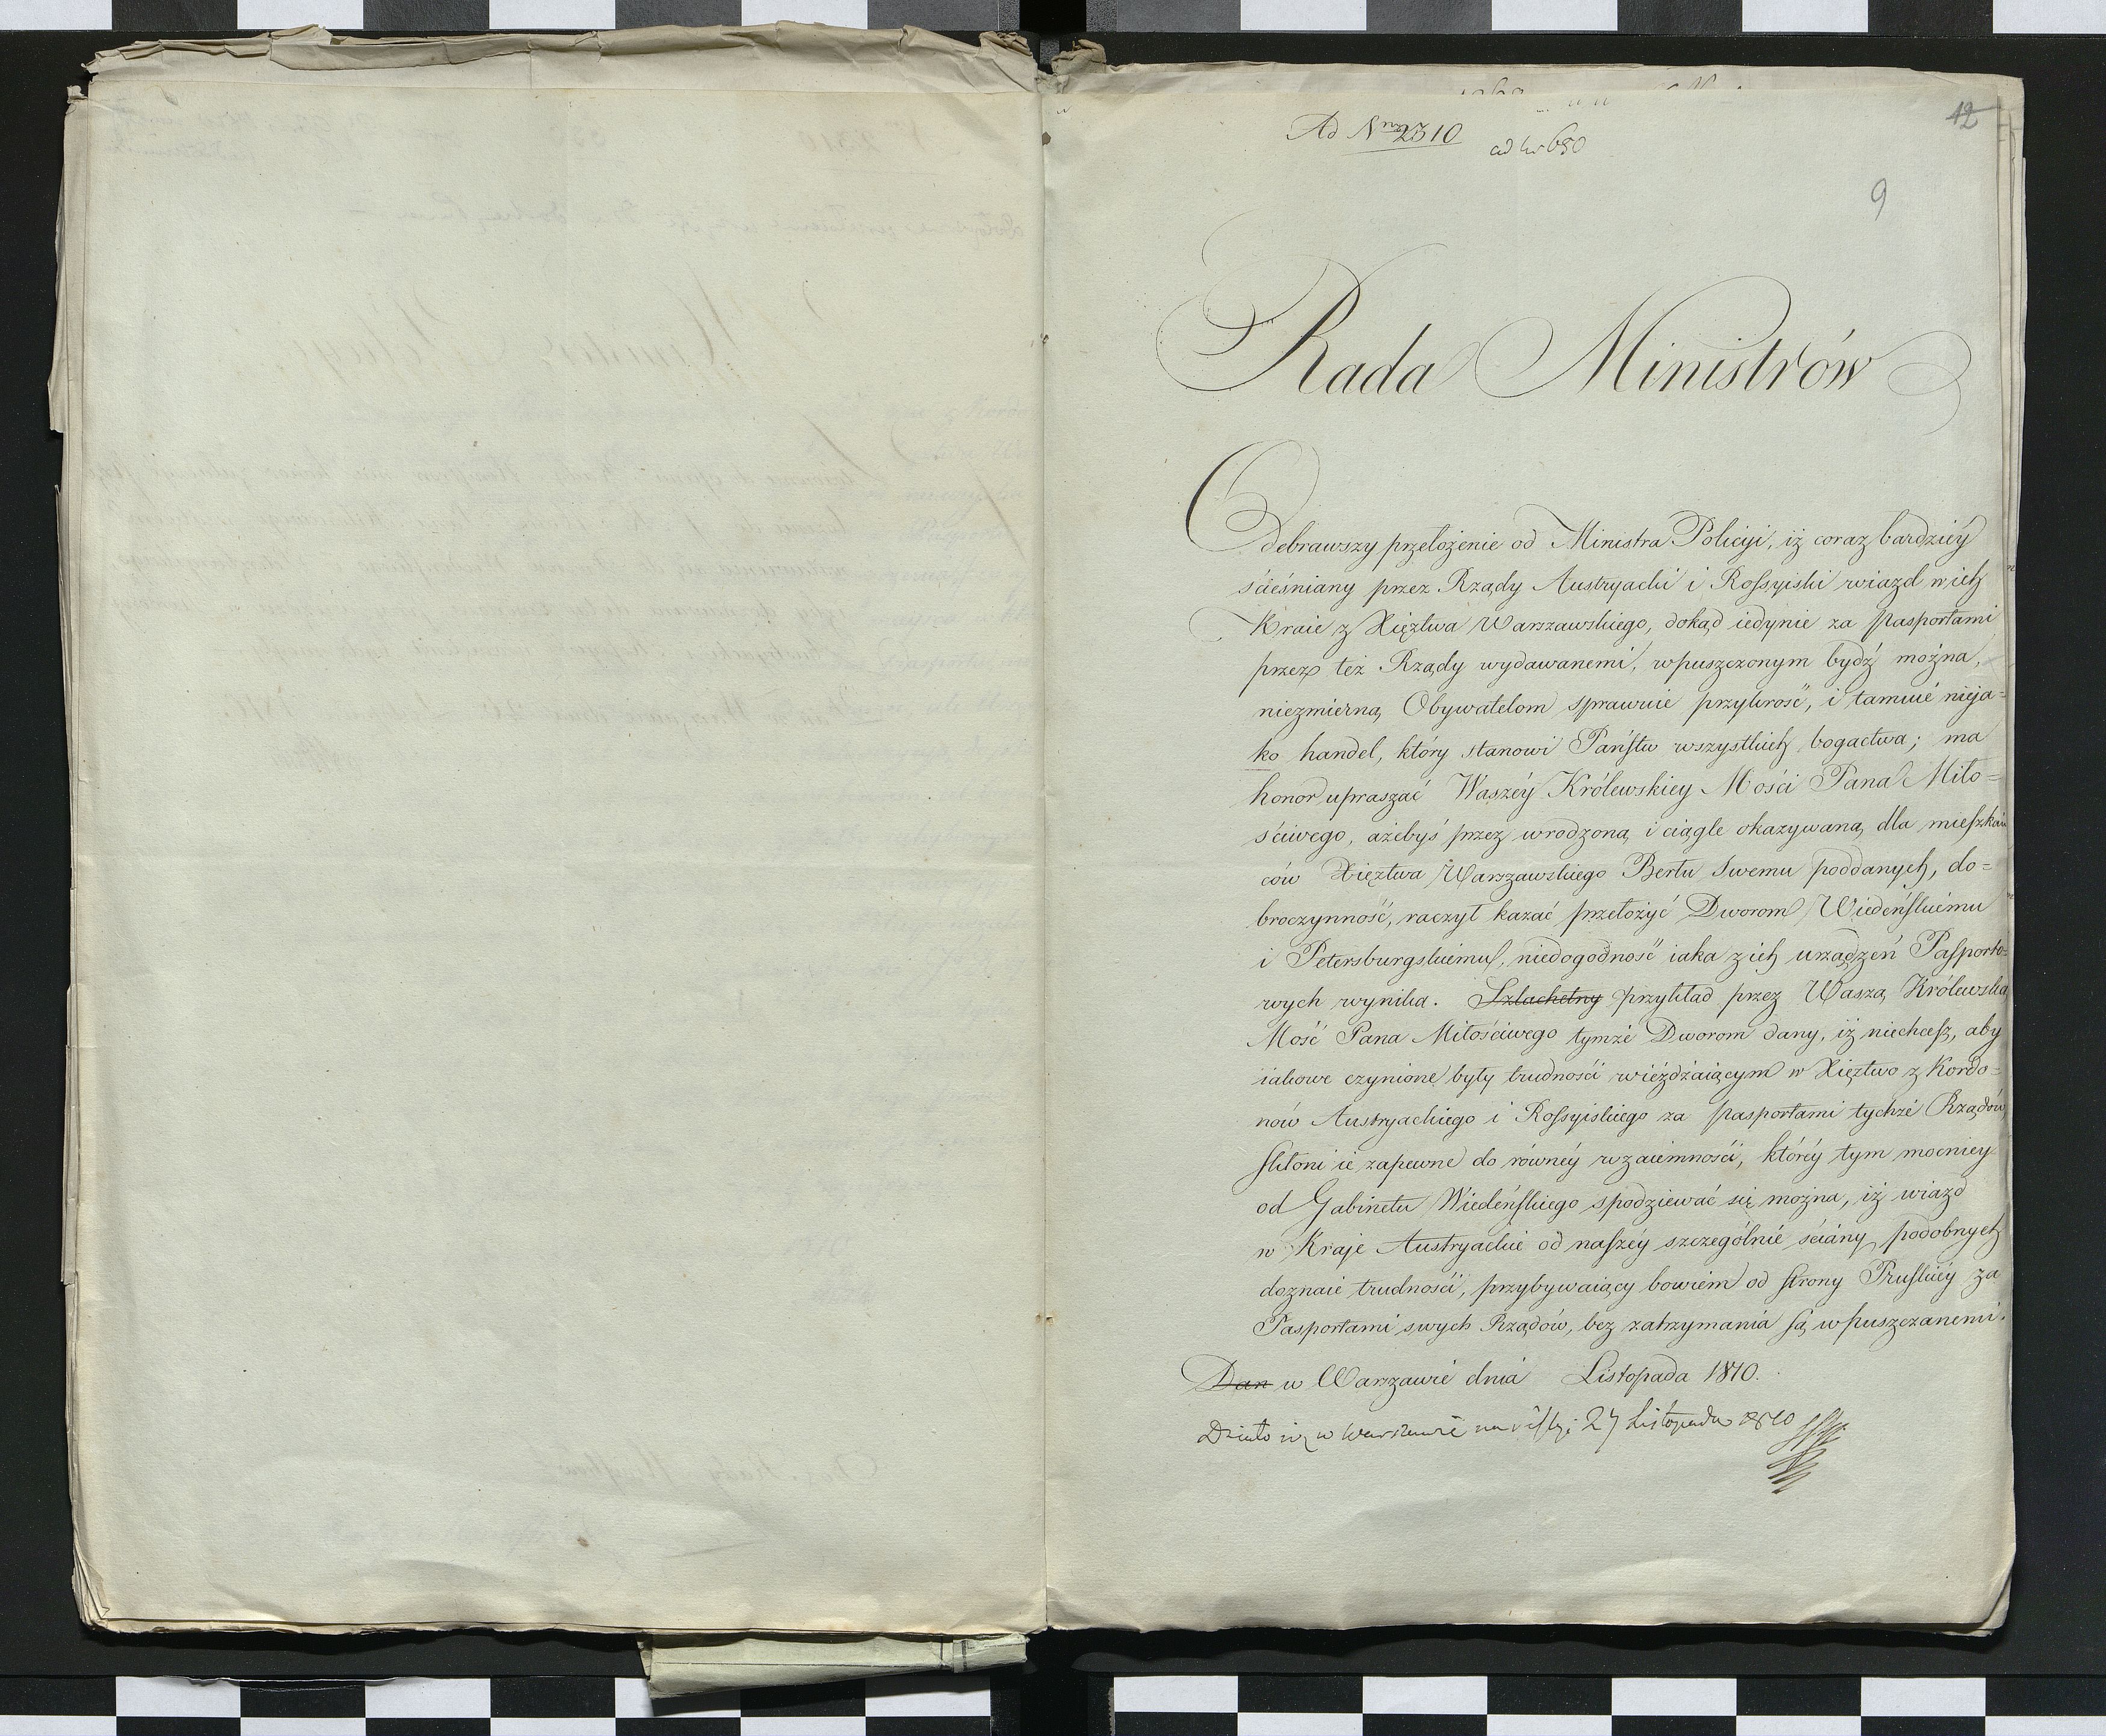 12
Ad Nrm 2310
ad Nr 650
9
Rada Ministrów
Odebrawszy przełożenie od Ministra Policyi, iż coraz bardziéy
ścieśniany przez Rządy Austryacki i Rossyiski wiazd w ich
Kraie z Xięztwa Warszawskiego, dokąd iedynie za pasportami
przez też Rządy wydawanemi, wpuszczonym bydź można,
niezmierną Obywatelom sprawuie przykrość, i tamuie nieja=
ko handel, który stanowi Państw wszystkich bogactwa; ma
honor upraszać Waszéy Królewskiey Mości Pana Miło=
ściwego, ażebyś przez wrodzoną i ciągle okazywaną dla mieszkań
ców Xięztwa Warszawskiego Berłu Swemu poddanych, do=
broczynność, raczył kazać przełożyć Dworom Wiedeńskiemu
i Petersburgskiemu, niedogodność iaka z ich urządzeń Pasporto=
wych wynika. Szlachetny przykład przez Waszą Królewską
Mość Pana Miłościwego tymże Dworom dany, iż niechcesz, aby
iakowe czynione były trudności wieżdżaiącym w Xięztwo z Kordo=
nów Austryackiego i Rossyiskiego za pasportami tychże Rządów,
skłoni ie zapewne do równéy wzaiemności, któréy tym mocniey
od Gabinetu Wiedeńskiego spodziewać się można, iż wiazd
w Kraje Austryackie od naszéy szczególnie ściany podobnych
doznaie trudności, przybywaiący bowiem od strony Pruskiéy za
Pasportami swych Rządów, bez zatrzymania są wpuszczanemi.
Dan w Warszawie dnia Listopada 1810.
Działo się w Warszawie na 27 Listopada 1810